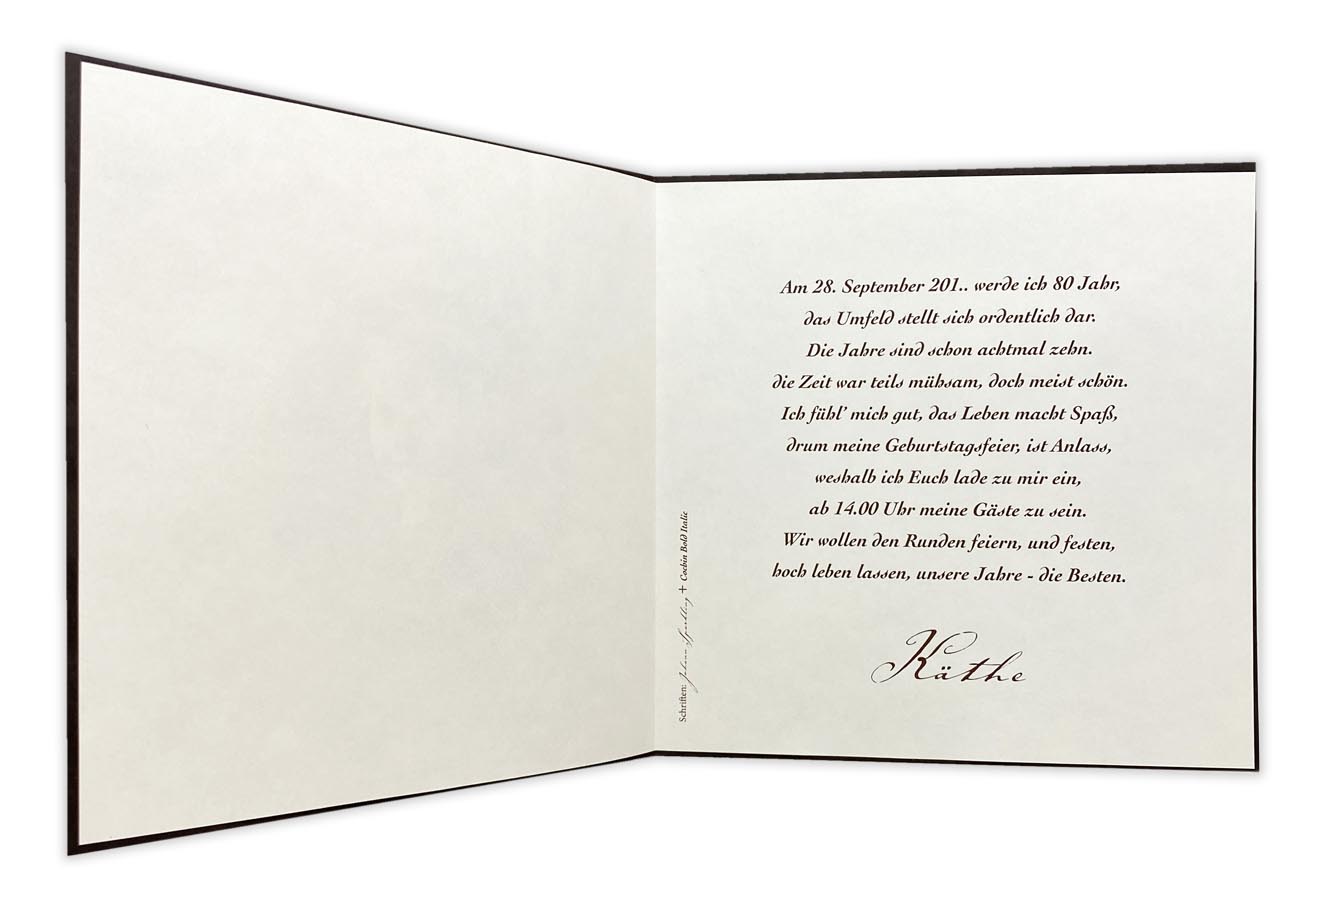 Am 28. September 201.. werde ich 80 Jahr,
das Umfeld stellt sich ordentlich dar.
Die Jahre sind schon achtmal zehn.
die Zeit war teils mühsam, doch meist schön.
Ich fühl’ mich gut, das Leben macht Spaß,
drum meine Geburtstagsfeier, ist Anlass,
weshalb ich Euch lade zu mir ein,
ab 14.00 Uhr meine Gäste zu sein.
Wir wollen den Runden feiern, und festen,
hoch leben lassen, unsere Jahre - die Besten.
Käthe
Schriften: Johann Sparkling + Cochin Bold Italic